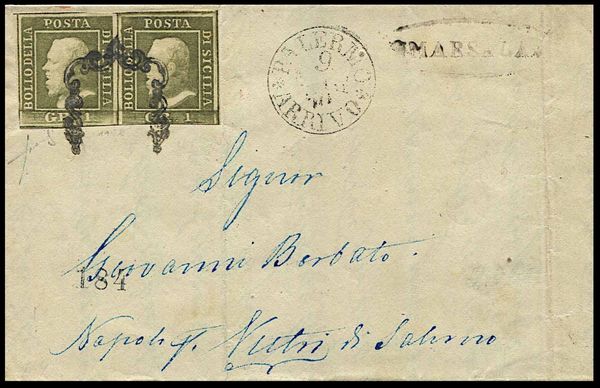 BOLLO DELLA POSTA DI SICILIA
GR. 1
BOLLO DELLA POSTA DI SICILIA
GR. 1
PALERMO
9
ARRIVO
MARSALA
Signor
Giovanni Berbato
184
Napoli p. Vietri di Salerno